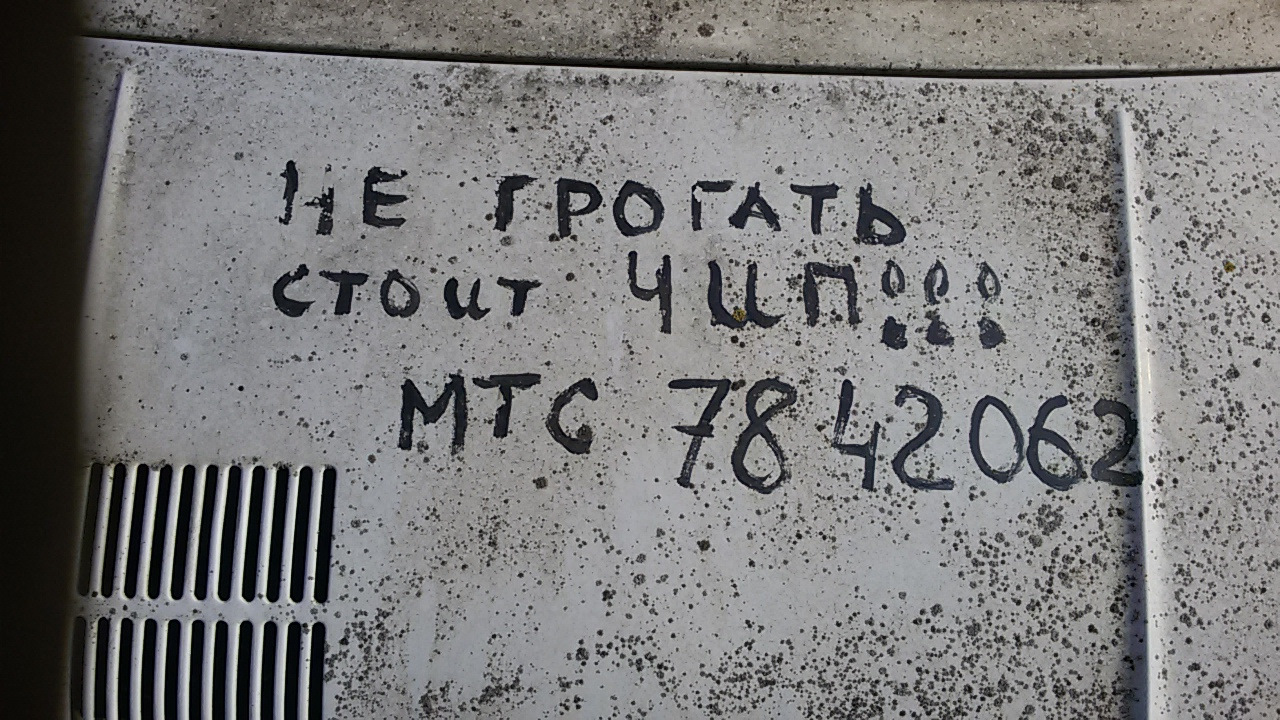 НЕ ТРОГАТЬ
СТОИТ ЧИП!!!
МТС 7842062